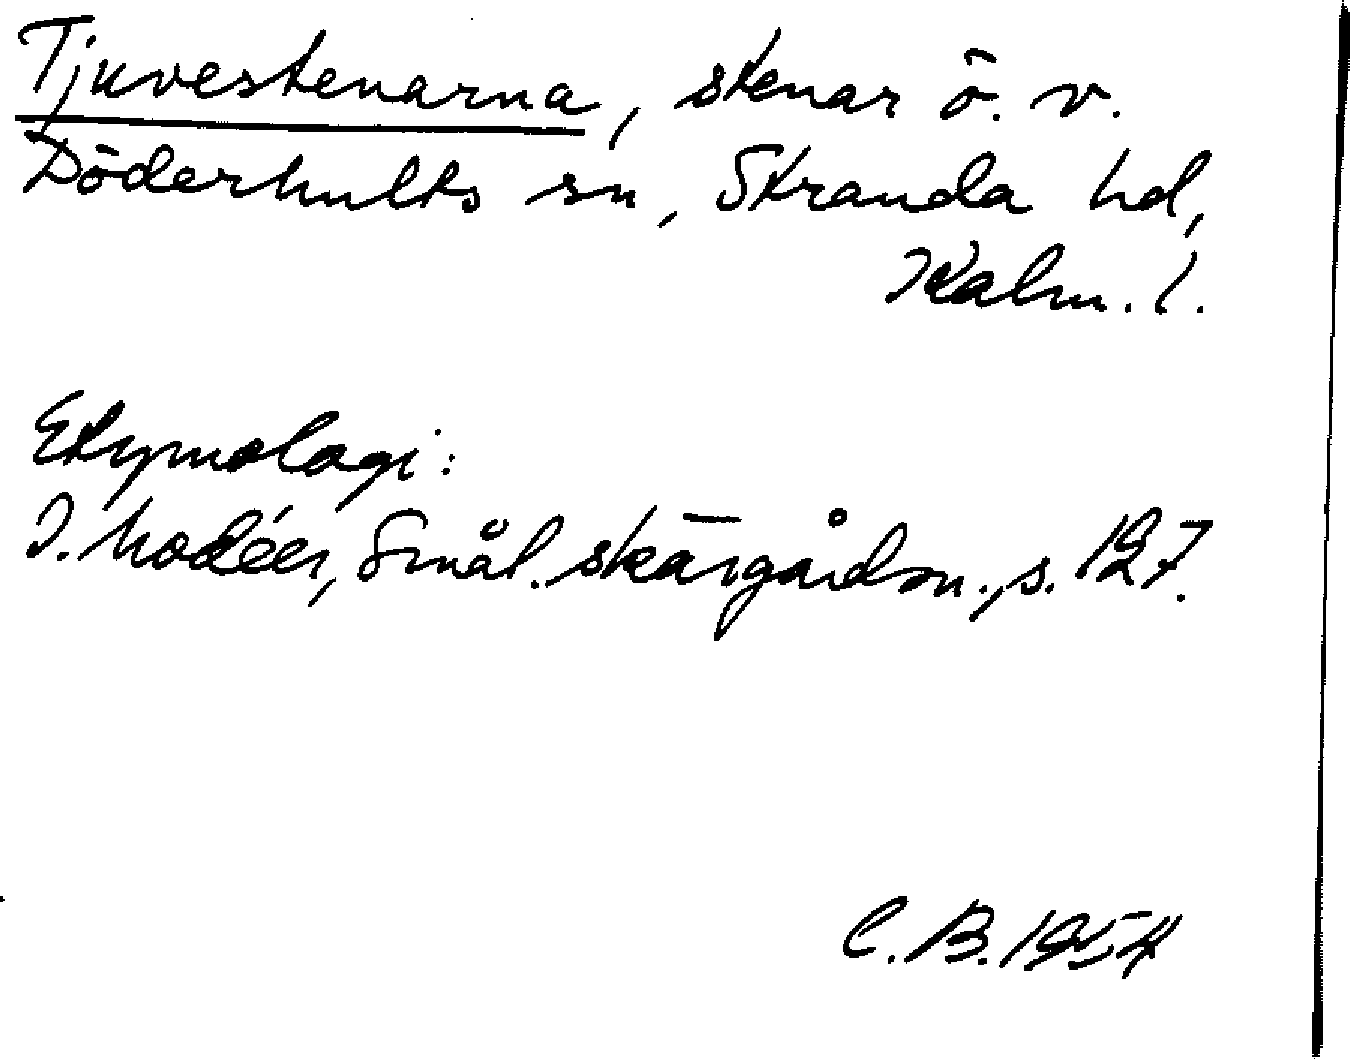 Tjuvestenarna, stenar ö. v.
Döderhults sn, Stranda hd,
Kalm. l.
Etymologi:
I. Modéer, Smål. skärgårdsn., s. 127.
C. B. 1954